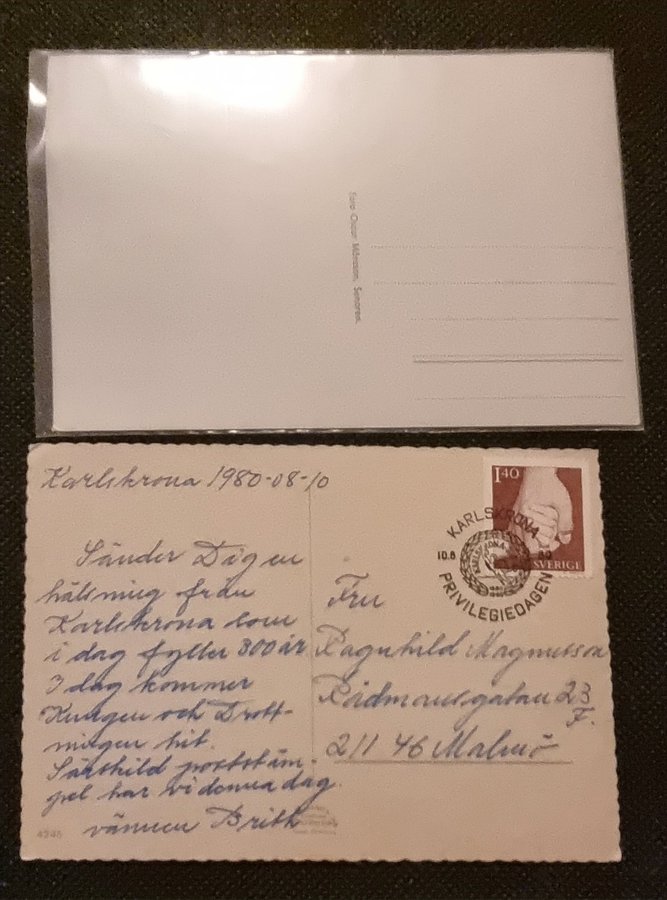 Foto Oscar Månsson, Senoren.
Karlskrona 1980-08-10
Sänder Dig en
hälsning från
Karlskrona som
i dag fyller 300 år
I dag kommer
Kungen och Drott-
ningen hit.
Särskild poststäm-
pel har vi denna dag.
vännen Brith
4245
1.40
SVERIGE
KARLSKRONA
10.8
80
PRIVILEGIEDAGEN
Fru
Ragnhild Magnusson
Rådmansgatan 23
F.
211 46 Malmö